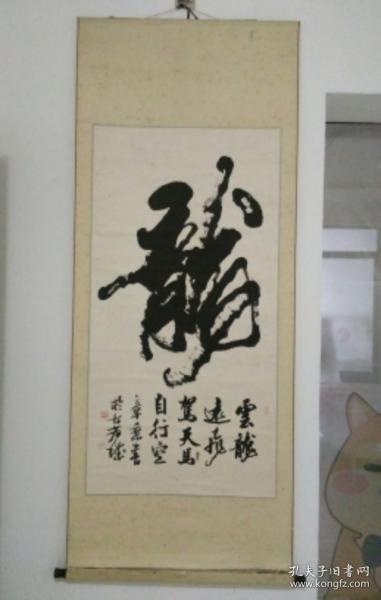 龍
雲龍
遠飛
駕天馬
自行空
孔夫子旧书网
www.kongfz.com